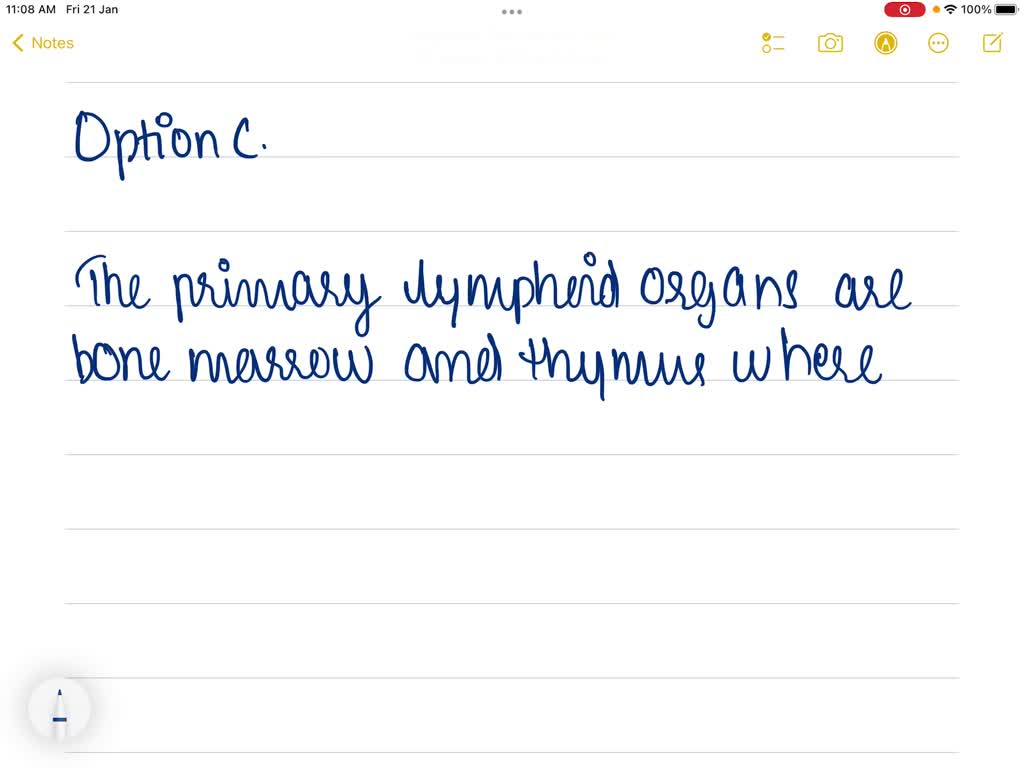 11:08 AM Fri 21 Jan 100%
Notes
Option C.
The primary lymphoid organs are
bone marrow and thymus where